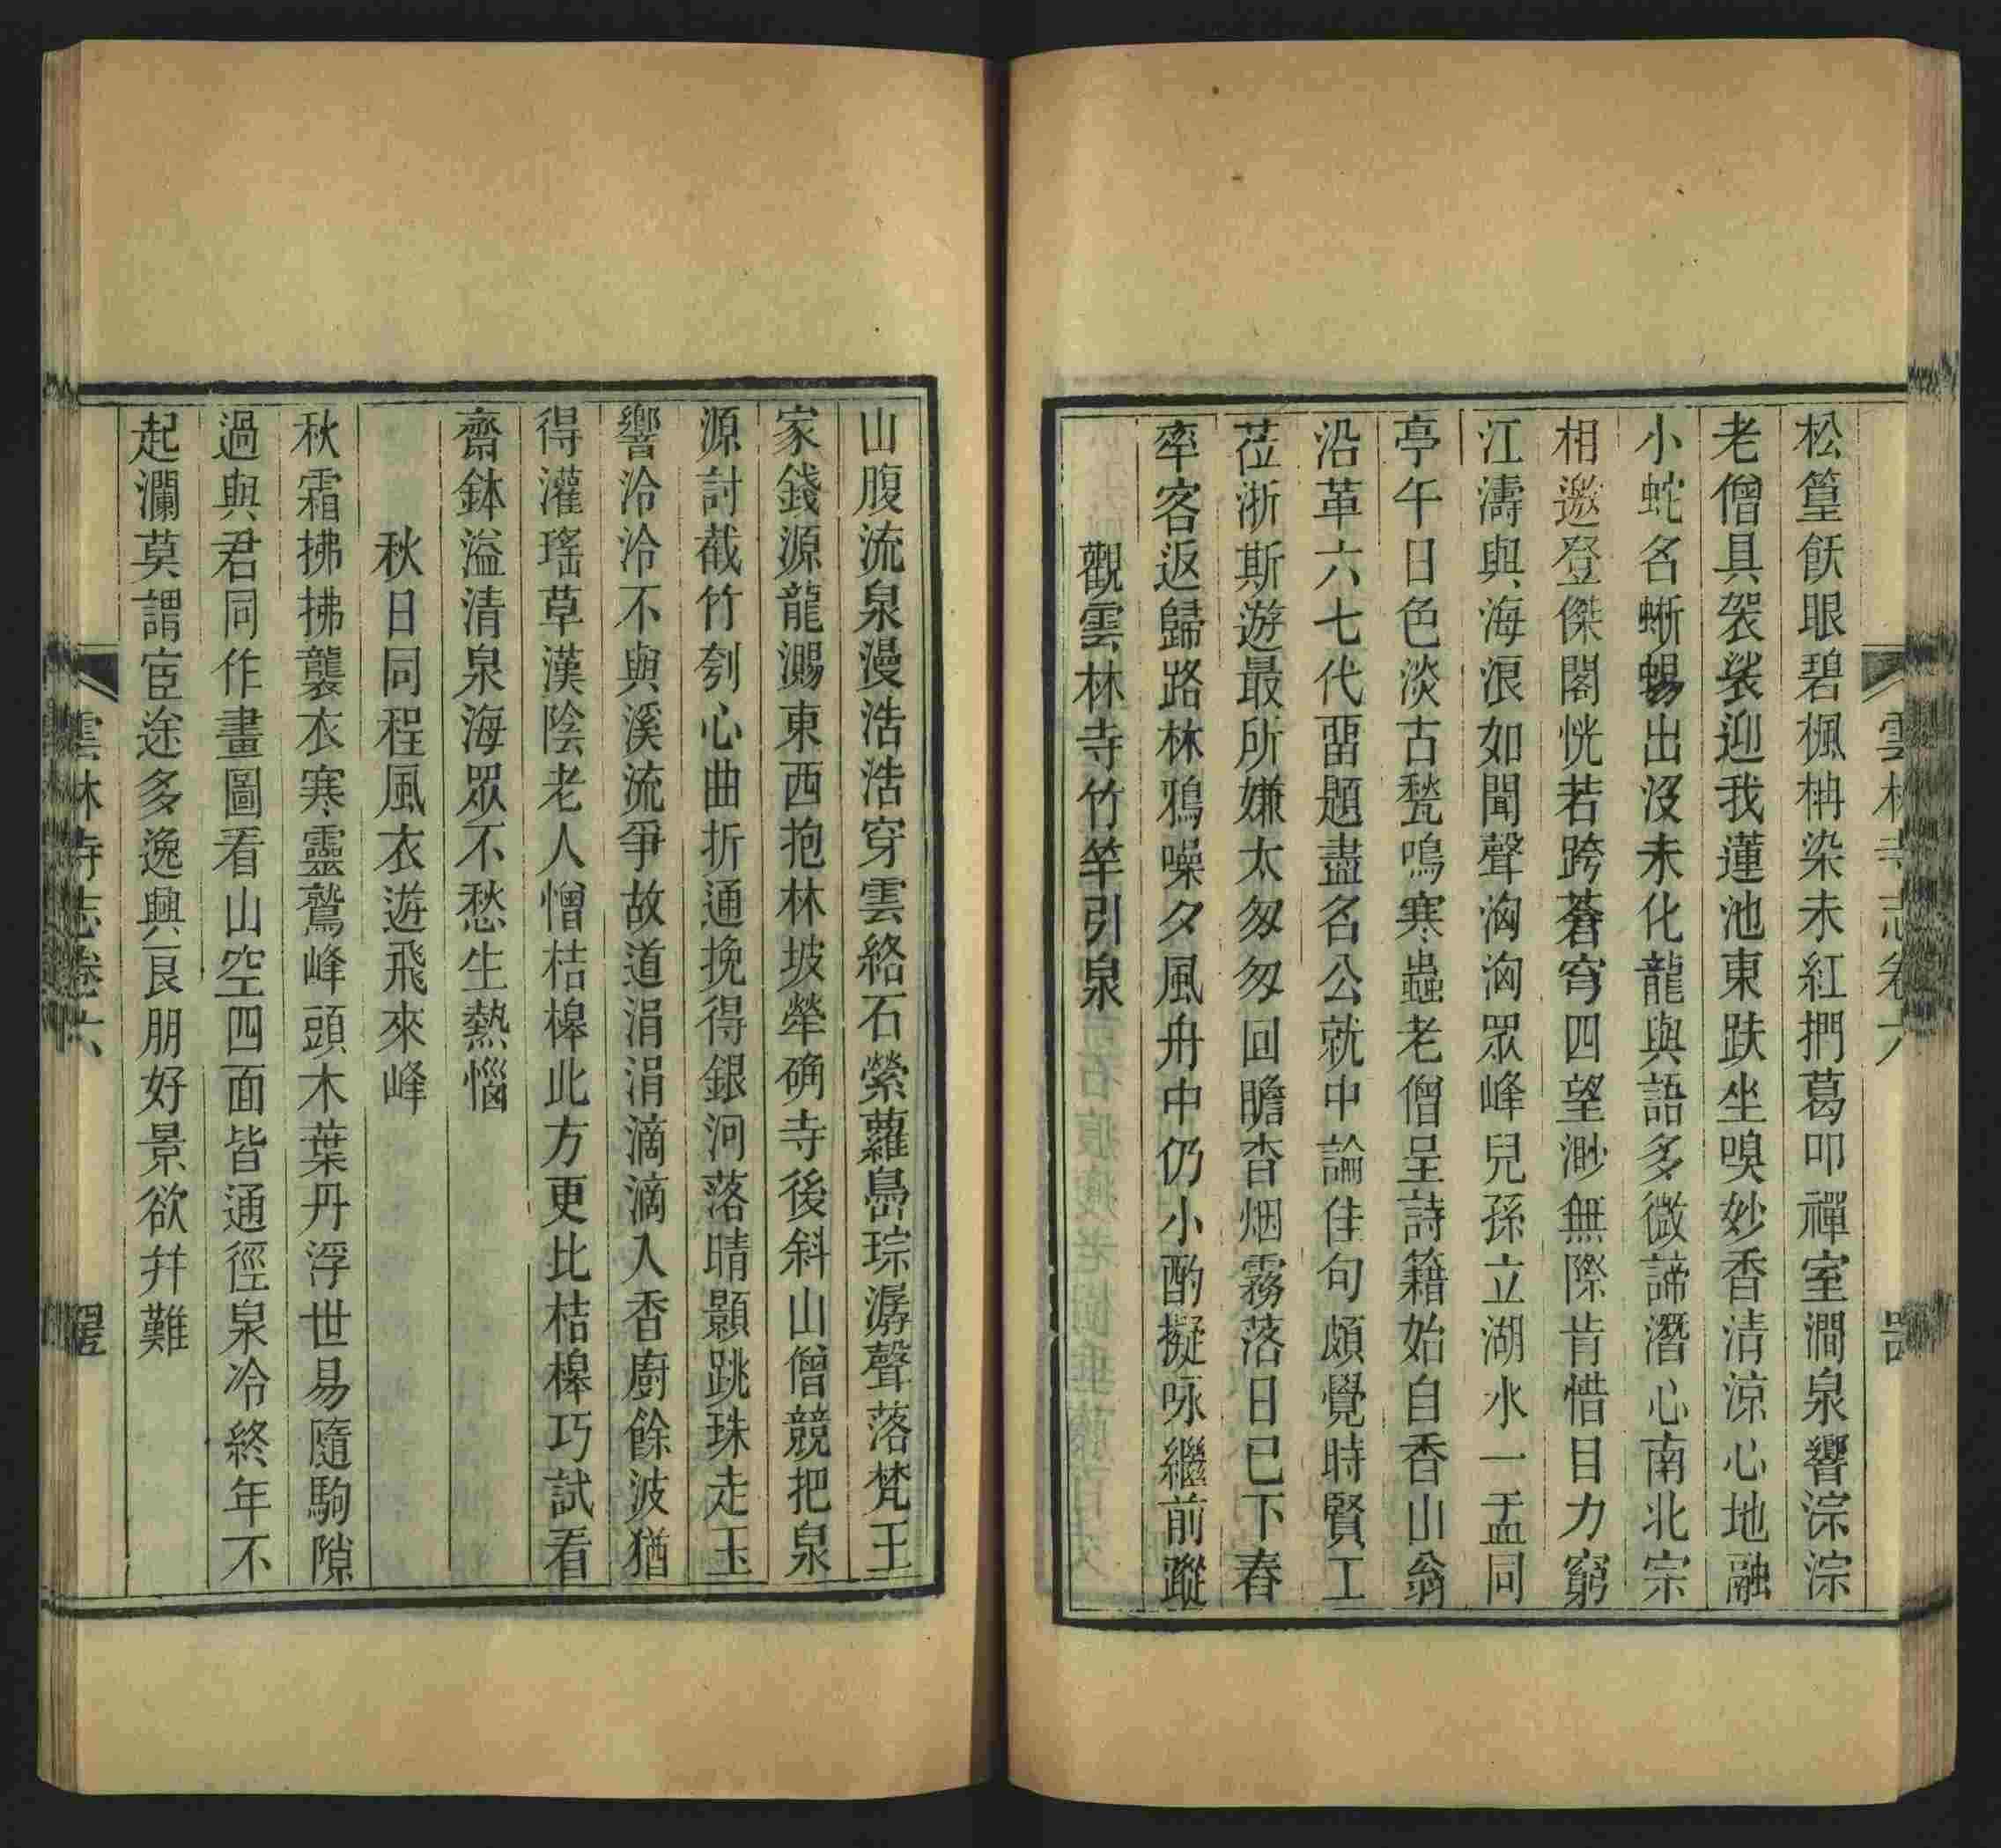 雲林寺志卷六
松篁飫眼碧楓柟染未紅捫葛叩禪室澗泉響淙淙
老僧具袈裟迎我蓮池東趺坐嗅妙香清涼心地融
小蛇名蜥蜴出沒未化龍與語多微諦潛心南北宗
相邀登傑閣恍若跨蒼穹四望渺無際肯惜目力窮
江濤與海浪如聞聲洶洶眾峰兒孫立湖水一盂同
亭午日色淡古甃鳴寒蟲老僧呈詩籍始自香山翁
沿革六七代畱題盡名公就中論佳句頗覺時賢工
莅浙斯遊最所嫌太匆匆回瞻杳烟霧落日已下舂
率客返歸路林鴉噪夕風舟中仍小酌擬咏繼前蹤
觀雲林寺竹竿引泉
山腹流泉漫浩浩穿雲絡石縈蘿蔦琮潺聲落梵王
家錢源龍溮東西抱林坡犖确寺後斜山僧競把泉
源討截竹刳心曲折通挽得銀河落晴顥跳珠走玉
響泠泠不與溪流爭故道涓涓滴滴入香廚餘波猶
得灌瑤草漢陰老人憎桔槔此方更比桔槔巧試看
齋鉢溢清泉海眾不愁生熱惱
秋日同程風衣遊飛來峰
秋霜拂拂襲衣寒靈鷲峰頭木葉丹浮世易隨駒隙
過與君同作畫圖看山空四面皆通徑泉冷終年不
起瀾莫謂宦途多逸興良朋好景欲幷難
雲林寺志卷六